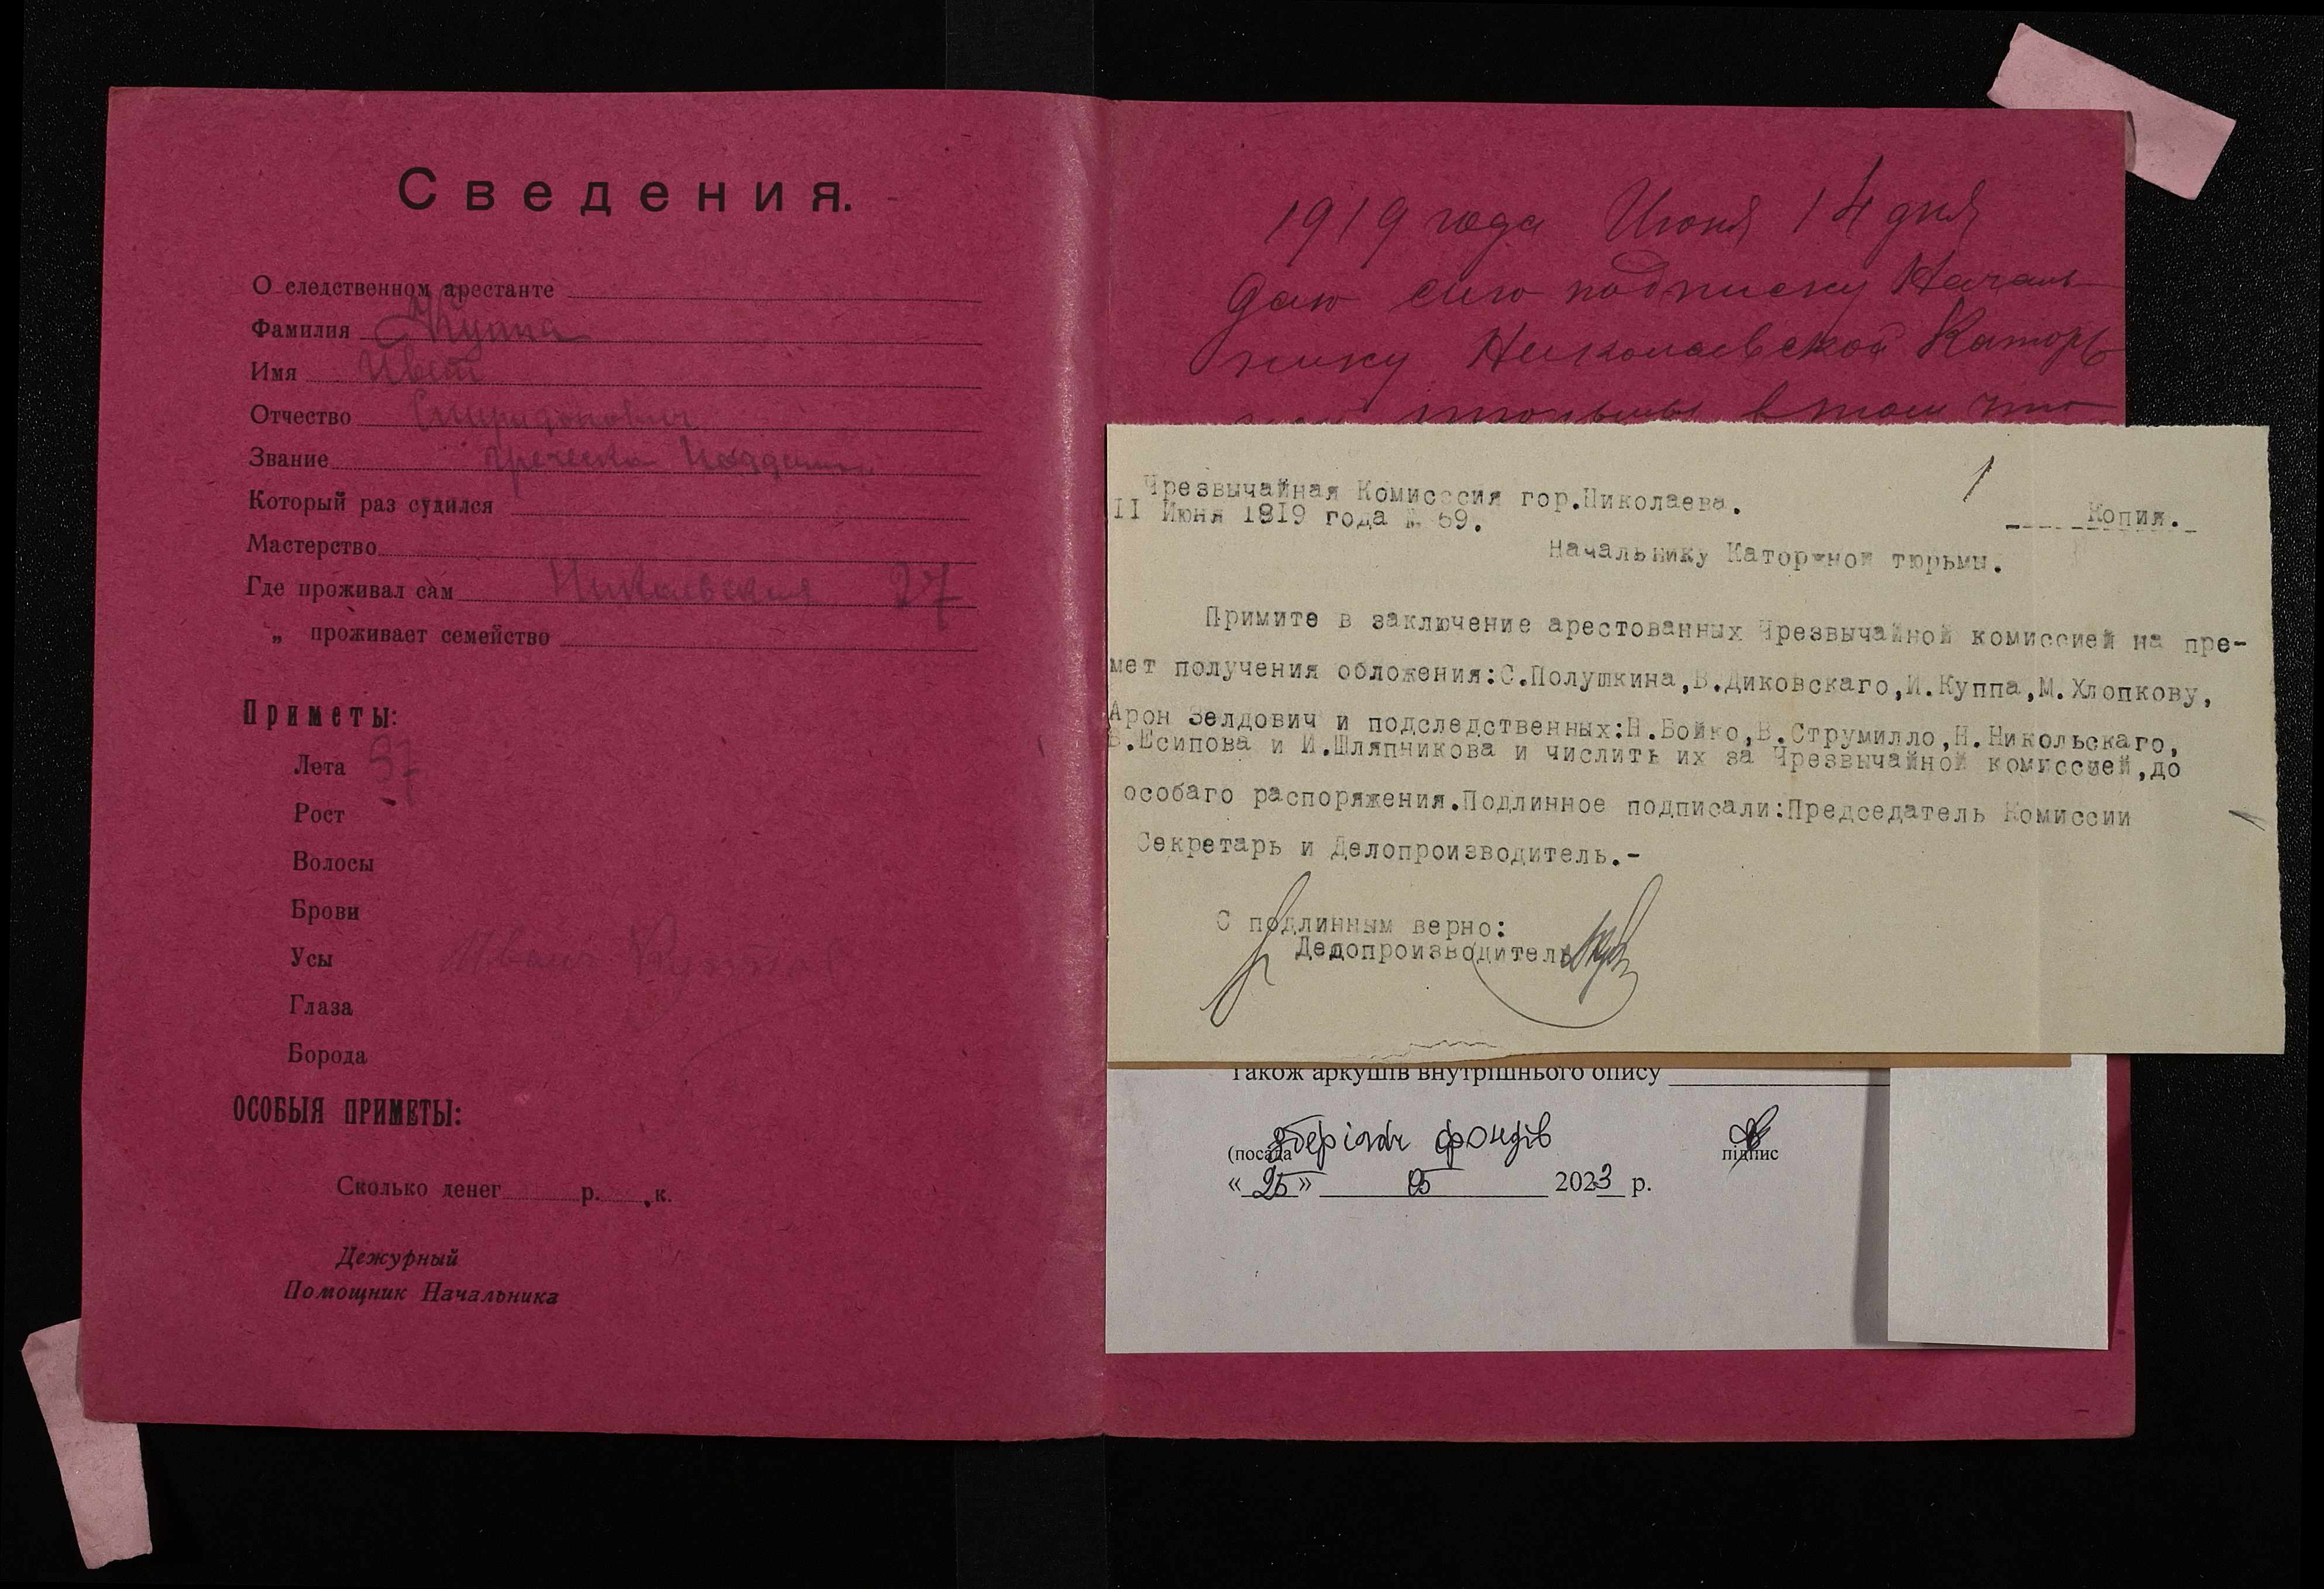 Сведения.
О следственном арестанте
Фамилия Куппа
Имя Иван
Отчество Спиридонович
Звание Гречески Поддан
Который раз судился
Мастерство
Где проживал сам 27
„ проживает семейство
Приметы:
Лета 37
Рост
Волосы
Брови
Усы
Иван Куппа
Глаза
Борода
ОСОБЫЯ ПРИМЕТЫ:
Сколько денег р. к.
Дежурный
Помощник Начальника
1919 года Июня 14 дня
даю сию подписку Началь
нику Николаевской Каторж
ной тюрьмы в том что
1
Чрезвычайная Комисссия гор.Николаева.
II Июня 1819 года № 69.
Копия.
Начальнику Каторжной тюрьмы.
Примите в заключение арестованных Чрезвычайной комиссией на пре-
мет получения обложения:С.Полушкина,В.Диковскаго,И.Куппа,М.Хлопкову,
Арон Зелдович и подследственных:Н.Бойко,В.Струмилло,Н.Никольскаго,
В.Есипова и И.Шляпникова и числить их за Чрезвычайной комиссией,до
особаго распоряжения.Подлинное подписали:Председатель Комиссии
Секретарь и Делопроизводитель.-
С подлинным верно:
Делопроизводитель
Також аркушів внутрішнього опису
(посада зберігач фондів
підпис
« 25 » 05 2023 р.